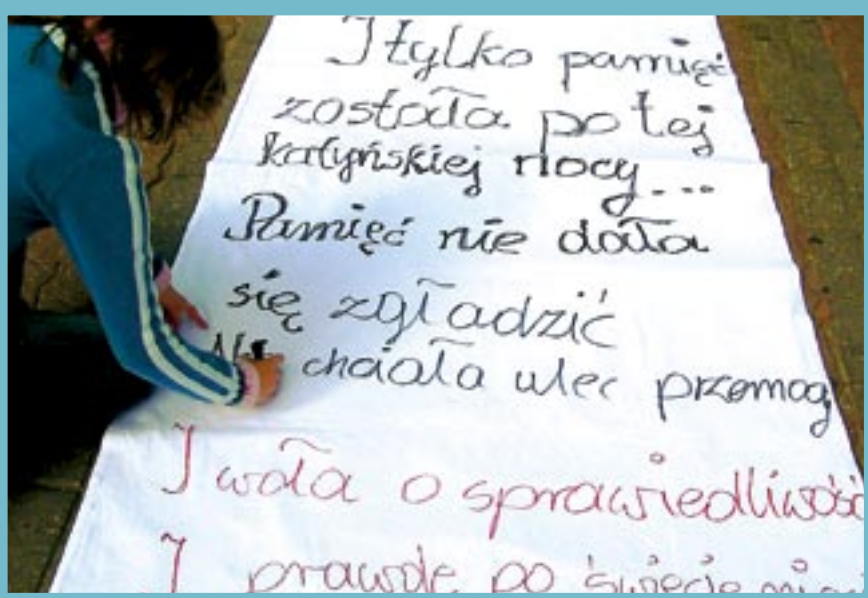 I tylko pamięć
została po tej
katyńskiej nocy...
Pamięć nie dała
się zgładzić
chciała ulec przemocy
I woła o sprawiedliwość
I prawdę po świecie